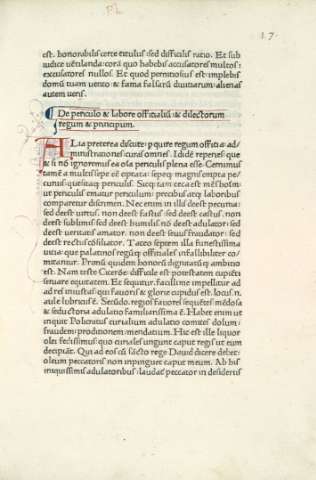 17.
est. honorabilis certe titulus sed difficilis ratio. Et sub
iudice uētilanda: corā quo habebis accusatores multos:
excusatores nullos. Et quod pernitiosius est: implebis
domū tuam uento & fama falsarū diuitiarum: alienas
autem ueris.
De periculo & labore offitialiū & dilectorum
regum & principum.
ALia preterea discute: p quire regum offitia: ad/
ministrationes curas omnes. Ididē reperies: que
& si nō ignoremus ea oīa periculis plena esse. Cernimus
tamē a multis sepe eē optata: sepeq magnis empta pe/
cuniis: quesitaq periculis. Sicq tam ceca est mēs hoīm:
ut periculis ematur periculum: precibusq atq laboribus
comparetur discrimen. Nec enim in illis deest pecunia:
sed deest uirtus. non deest fastus: sed deest castus. non
deest sublimis sed deest humilis nō deest adulator: sed
deest ueritatis amator. non deest seuus fraudator: sed
deest rectus cōsiliator. Taceo septem illa funestissima
uitia: que palatinos regūq offitiales infallibiliter co/
mitantur. Primū quidem honoris dignitatisq ambitio
est. Nam teste Cicerōe: difficile est potestatem cupiētē
seruare equitatem. Et sequitur. facillime impellitur ad
ad res iniustas: qui fauoris & glorie cupidus est. locus n̄
aule lubricus ē. Secūdo. regios fauores sequētes: mēdosa
& seductoria adulatio familiarissima ē. Habet enim ut
inquit Policratus curialium adulatio comites dolum:
fraudem: proditionem: mendatium. Hic est ille liquor
olei fecissimus: quo curiales ungunt caput regis ut eum
decipiāt. Qui ad eos cū sācto rege Dauid dicere debet:
oleum peccatoris non inpinguet caput meum. Ab his
iniquissimis adulatoribus: laudat͛ peccator in desideriis